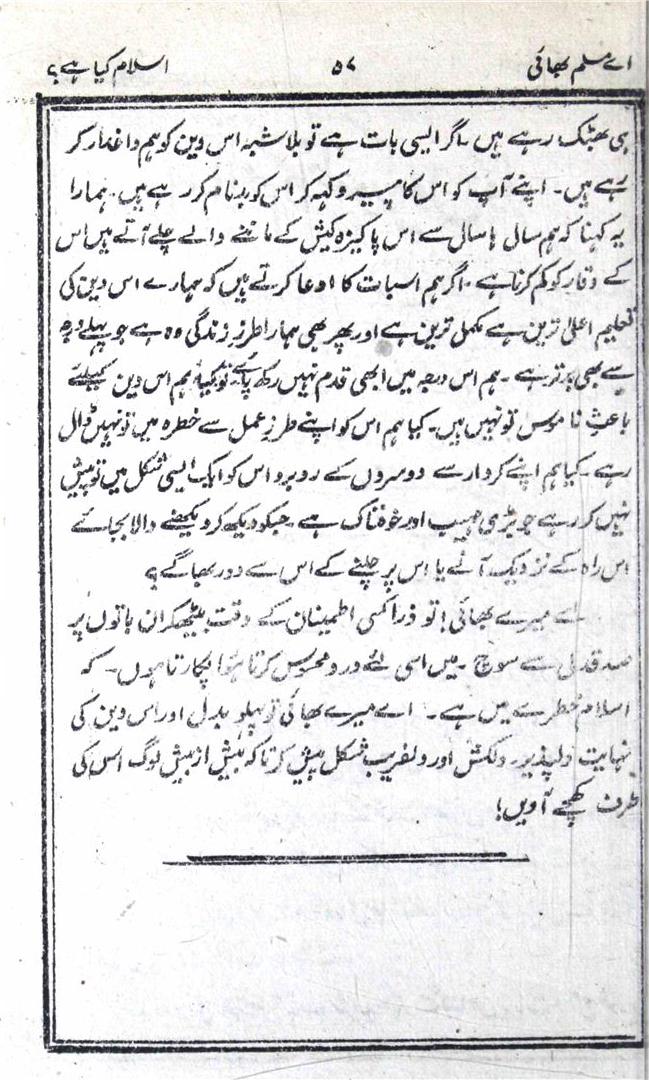 اے مسلم بھائی ۵۷ اسلام کیا ہے؟
ہی بھٹک رہے ہیں ۔ اگر ایسی بات ہے تو بلا شبہ اس دین کو ہم داغدار کر
رہے ہیں۔ اپنے آپ کو اس کا پیرو کہہ کر اس کو بدنام کر رہے ہیں۔ ہمارا
یہ کہنا کہ ہم سال ہا سال سے اس پاکیزہ کیش کے ماننے والے چلے آتے ہیں اس
کے وقار کو کم کرنا ہے ۔ اگر ہم اسبات کا ادعا کرتے ہیں کہ ہمارے اس دین کی
تعلیم اعلیٰ ترین ہے مکمل ترین ہے اور پھر بھی ہمارا طرز زندگی وہ ہے جو پہلے درجہ
سے بھی بدتر ہے ۔ ہم اس درجہ میں ابھی قدم نہیں رکھ پائے۔ تو کیا ہم اس دین کیلئے
باعثِ ناموس تو نہیں ہیں۔ کیا ہم اس کو اپنے طرز عمل سے خطرہ میں تو نہیں ڈال
رہے ۔ کیا ہم اپنے کردار سے دوسروں کے روبرو اس کو ایک ایسی شکل میں تو پیش
نہیں کر رہے جو بڑی مہیب اور خوفناک ہے ۔ جسکو دیکھ کر دیکھنے والا بجائے
اس راہ کے نزدیک آنے یا اس پر چلنے کے اس سے دور بھاگے؟
اے میرے بھائی! تو ذرا کسی اطمینان کے وقت بیٹھکر ان باتوں پر
صدقدلی سے سوچ ۔ میں اسی لئے درد محسوس کرتا ہوا پکارتا ہوں ۔ کہ
اسلام خطرے میں ہے ۔ اے میرے بھائی تو پہلو بدل اور اس دین کی
نہایت دلپذیر، دلکش اور دلفریب شکل پیش کر تاکہ بیش از بیش لوگ اس کی
طرف کھچے آویں!